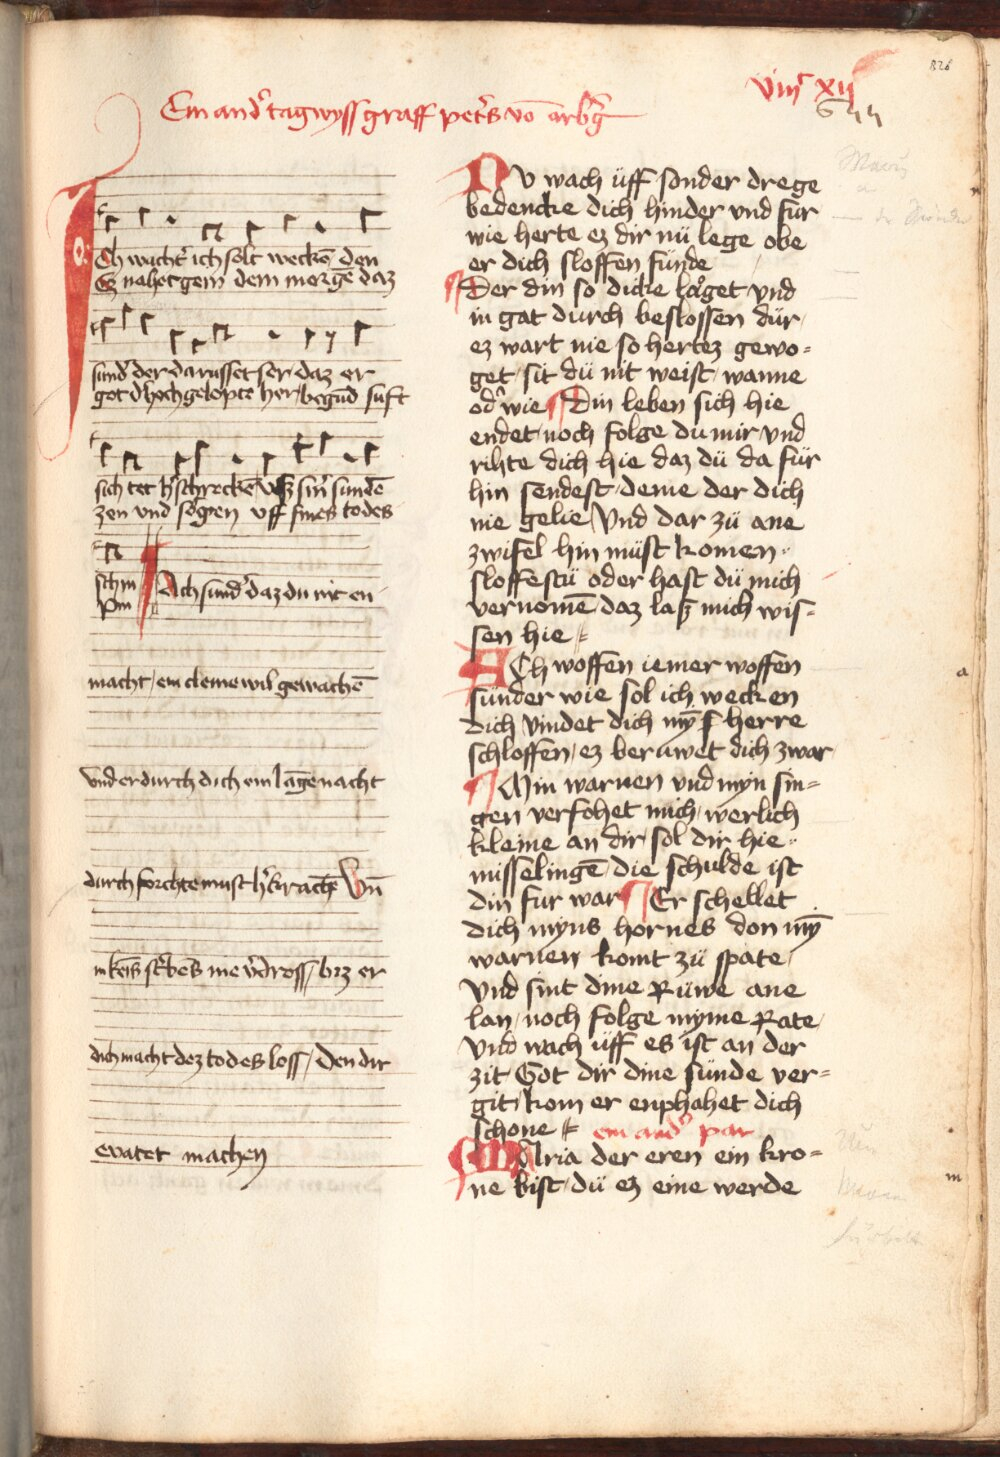 826
viijᶜ xij
Ein ander tagwyss graff peters võ arbᵉg
Ich wachter ich solt weckē den
Ez nahet gein dem morgē daz
sunder der da russet ser daz er
got d hochgelopte her / begūd suft
sich tet erschreckē vsz sinē sundē
zen vnd sorgen vff sines todes
schin
pin
Ach sunder daz du nit en
macht / ein cleine wil gewachē
vnd er durch dich ein lāge nacht
durch forchte must er krachē Vñ
dich macht dez todes loss / Den dir
evatet machen
NV wach üff sonder drege
bedencke dich hinder vnd für
wie herte ez dir nü lege obe
er dich sloffen fünde
Der din so dicke laͦget vnd
in gat durch beslossen dür /
ez wart nie so hertez gewo=
get / sit dü nit weist / wanne
oder wie Din leben sich hie
endet / noch folge du mir vnd
rihte dich hie daz dü da für
hin sendest / deme der dich
nie gelie / Vnd dar zü ane
zwifel hin müst komen
sloffestü oder hast dü mich
vernomē daz lasz mich wis=
sen hie
ACh woffen iemer woffen
sünder wie sol ich wecken
dich vindet dich my̅ herre
schloffen / ez beruwet dich zwar
Min warnen vnd myn sin=
gen verfohet mich / werlich
kleine an dir / sol dir hie
misselingē / die schulde ist
din fur war Er schellet
dich myns hornes don my̅
warnen komt zü spate /
Vnd sint dine Ruwe ane
lan / noch folge myme Rate /
vnd wach üff es ist an der
zit Got dir dine sünde ver=
git / kom er enphahet dich
schone
ein ander par
MAria der eren ein kro=
ne bist / dü ez eine werde
a
m